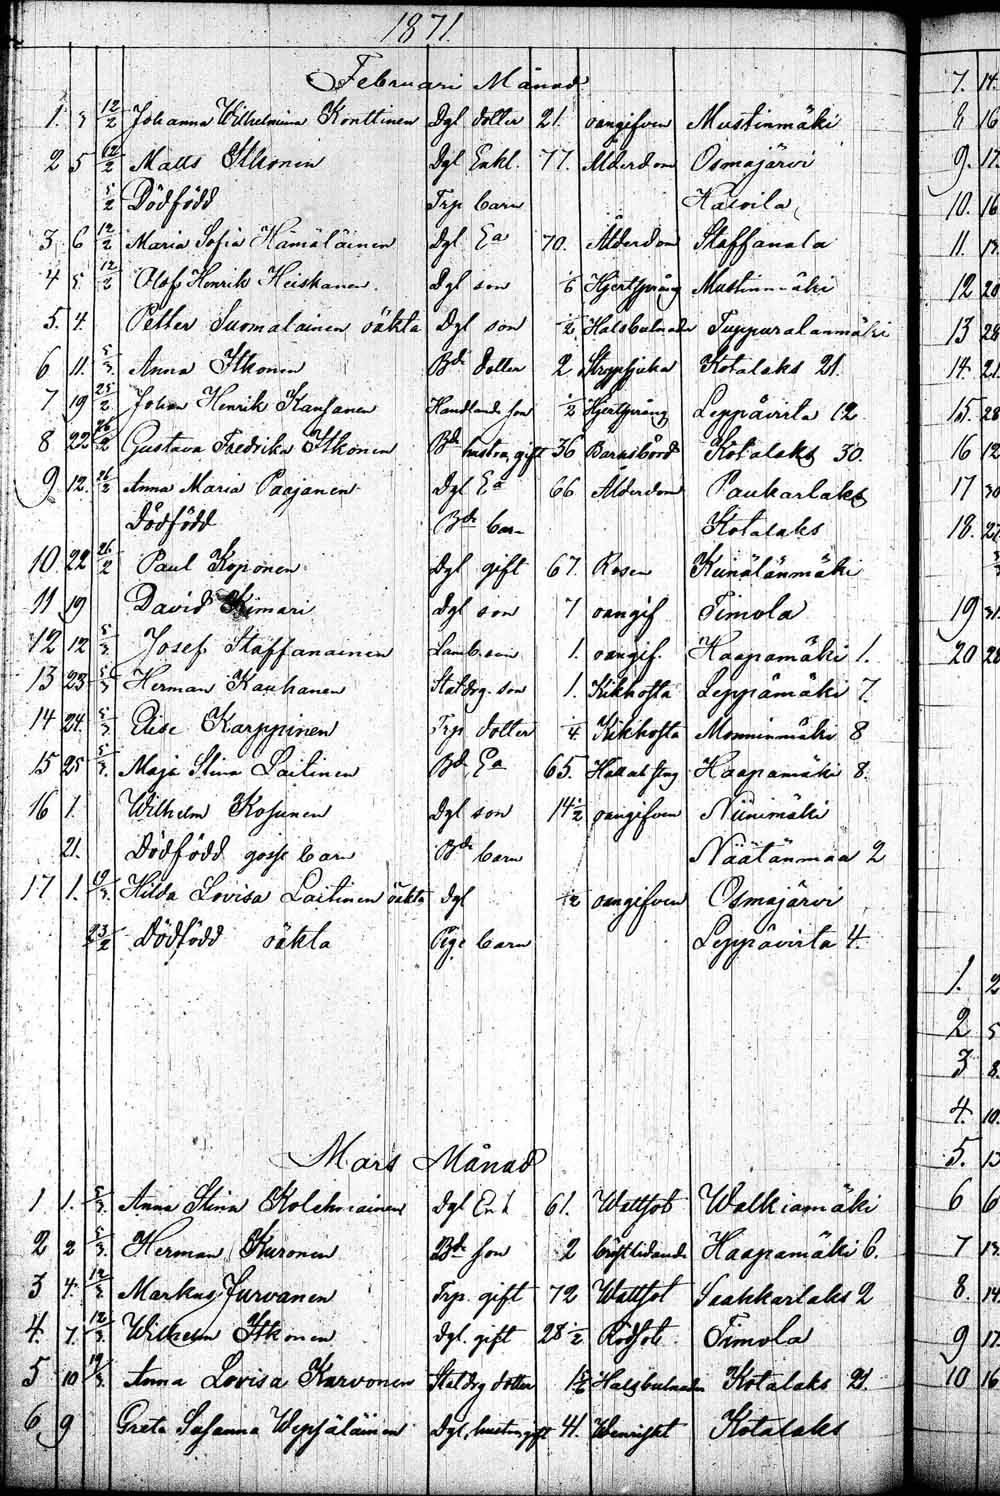 1871.
Februari Månad
1. 3 12/2 Johanna Wilhelmina Konttinen Dgl dotter 21. oangifven Mustinmäki
2 5 12/2 Matts Itkonen Dgl Enkl. 77. Ålderdom Osmajärvi
5/2 Dödfödd Trp barn
3 6 12/2 Maria Sofia Hämäläinen Dgl Ea 70. Ålderdom Staffanala
4 5 12/2 Olof Henrik Heiskanen Dgl son Hjertsprång Mustinmäki
5. 4. Petter Suomalainen oäkta Dgl son 1/2 Halsbulnader Tuppuralanmäki
6 11. 5/3. Anna Itkonen Bde dotter 2 Strypsjuka Kotalaks 21.
7 19 25/2 Johan Henrik Kansanen Handlande son 1/2 Hjertsprång Leppävirta 12
8 22 26/2 Gustava Fredrika Itkonen Bde hustru, gift 36 Barnsbörd Kotalaks 30.
9. 12. 26/2 Anna Maria Paajanen Dgl Ea 66 Ålderdom Paukarlaks
Dödfödd Bde barn Kotalaks
10. 22 26/2 Paul Koponen Dgl gift 67. Rosen
11 19 David Kimari Dgl son 7 oangif Timola
12 12 5/3. Josef Staffanainen son 1. oangif. Haapamäki 1.
13 23 5/3 Herman Kauhanen Staldrg. son 1. Kikhosta Leppämäki 7.
14 24. 5/3 Elise Karppinen Trp dotter 1/4 Kikhosta Monninmäki 8
15 25 5/3. Maja Stina Laitinen Bde Ea 65. Håll och styng Haapamäki 8.
16 1. Wilhelm Kosunen Dgl son 14 1/2 oangifven Niinimäki
21. Dödfödd gosse barn Bde barn Näätänmaa 2
17 1. 19/3. Hilda Lovisa Laitinen oäkta Dgl 1/2 oangifven Osmajärvi
23/2 Dödfödd oäkta Pige barn Leppävirta 4.
Mars Månad
1 1. 5/3. Anna Stina Kolehmainen Dgl Enk 61. Wattsot Walkiamäki
2 2 5/3. Herman Kuronen Bde son 2 bröstlidande Haapamäki 6.
3 4. 12/3. Markus Turvanen Trp. gift 72 Wattsot Saahkarlaks 2
4. 7. 12/3. Wilhelm Itkonen Dgl. gift 28 1/2 Rödsot Timola
5 10 19/3. Anna Lovisa Karvonen Staldrg dotter Halsbulnader Kotalaks 21.
6 9 Greta Susanna Wepsäläinen Dgl. hustru, gift 41. Kotalaks
7. 14.
8 16
9. 17.
10. 16
11. 19.
12 20
13 28
14. 21.
15. 28
16 12
17 30
18. 21
19 31.
20 28
1. 2
2 5
3 8.
4. 10.
5. 13
6 6
7 13.
8. 14
9 17.
10 16